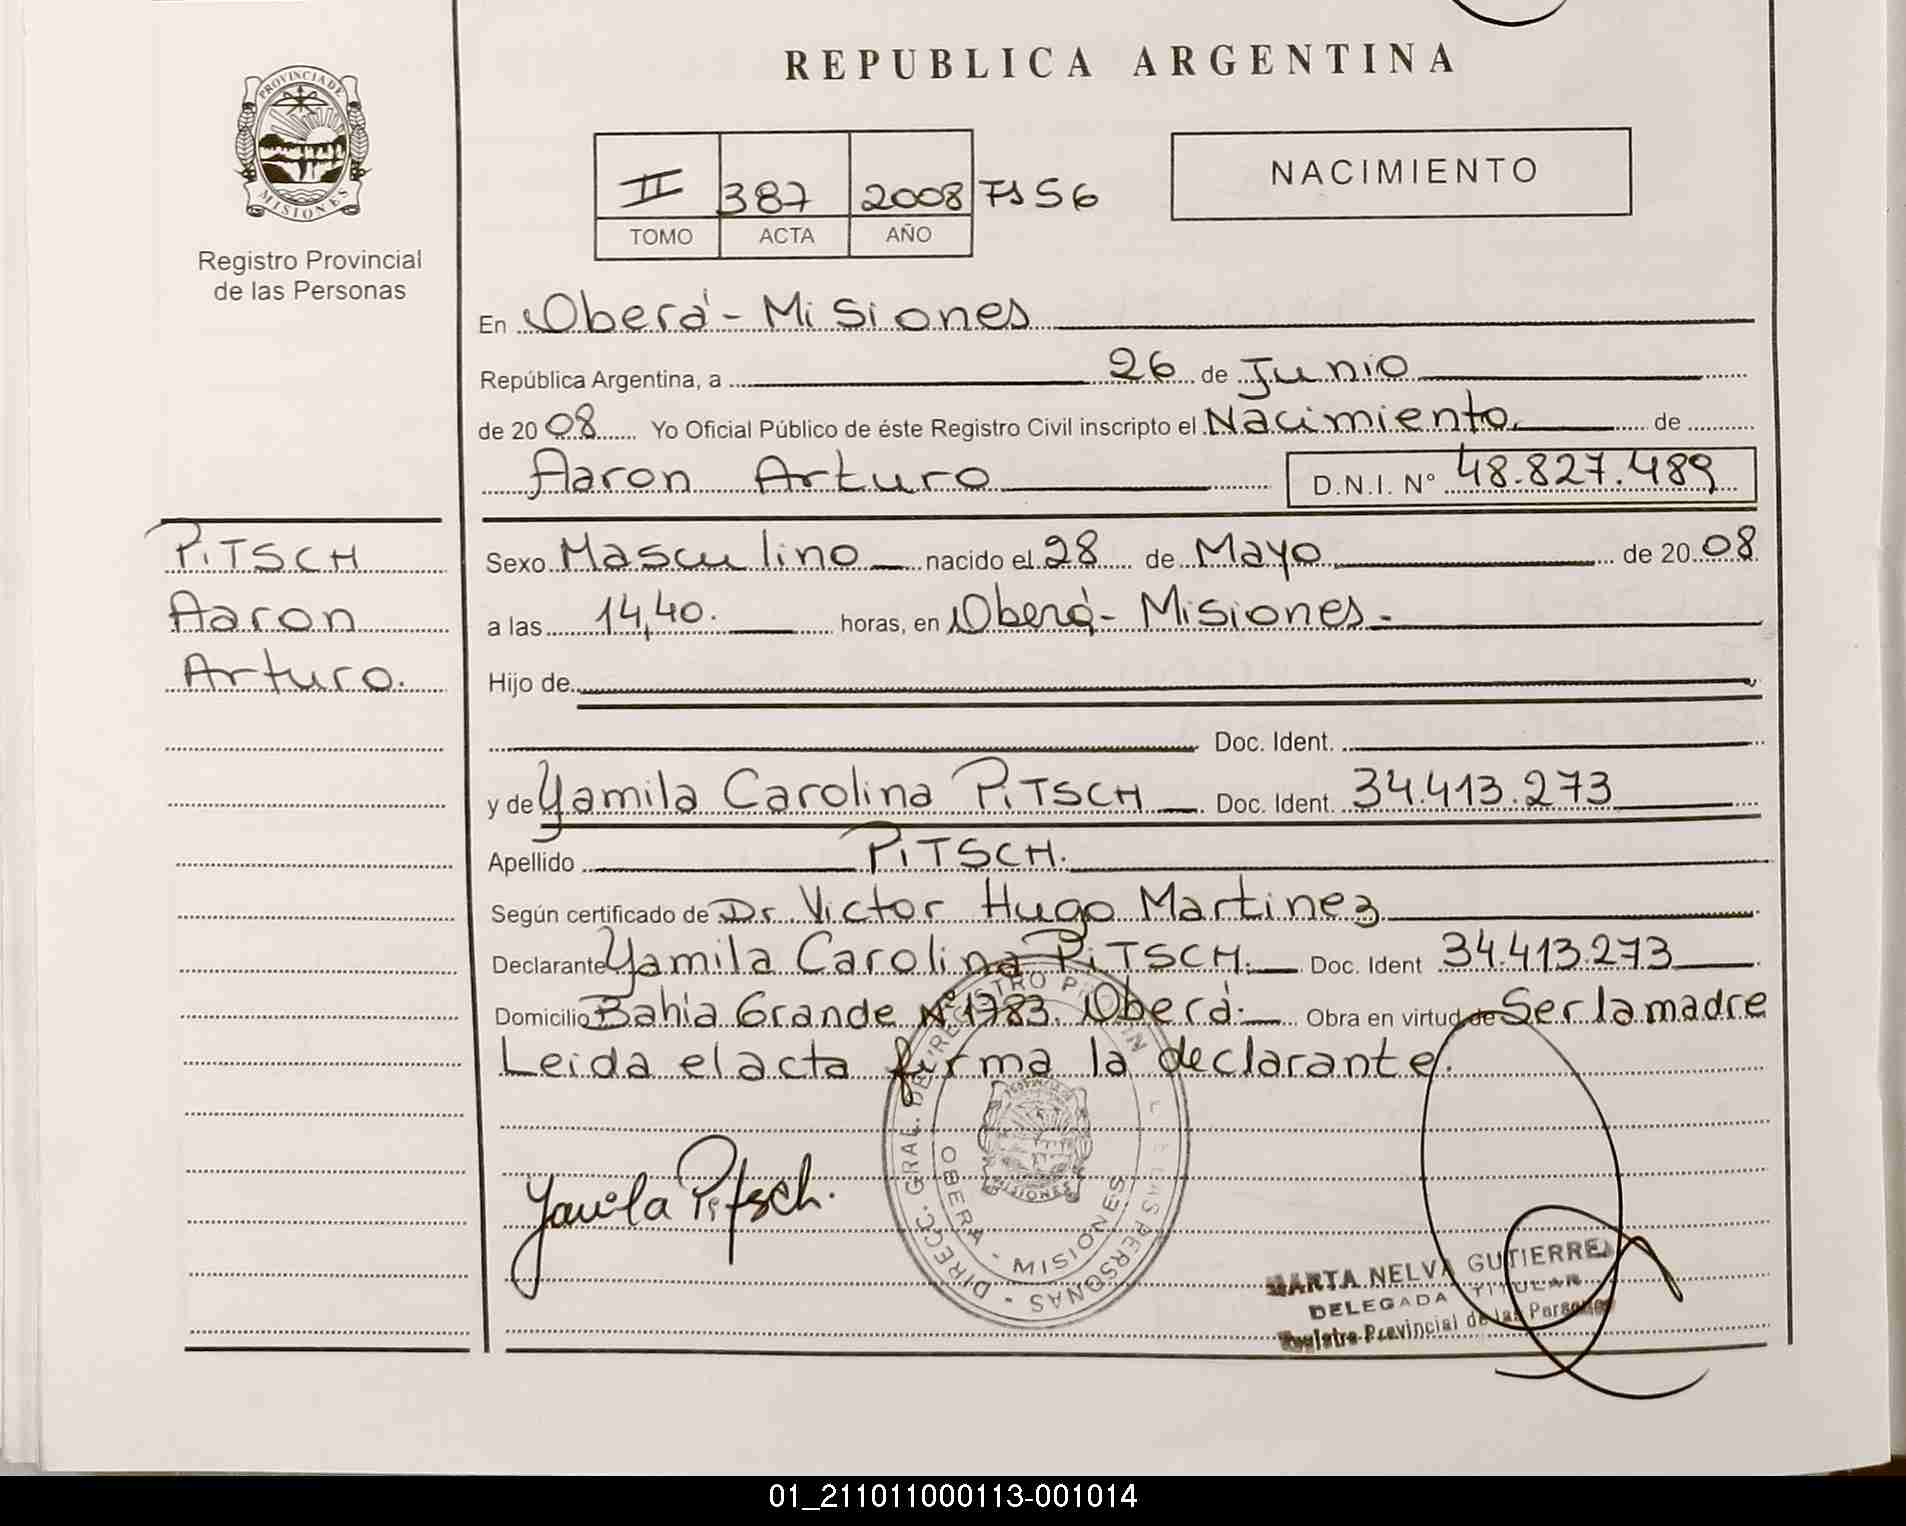 REPUBLICA ARGENTINA
PROVINCIA DE
MISIONES
Registro Provincial
de las Personas
II 387 2008 Fs 56
TOMO ACTA AÑO
NACIMIENTO
En Oberá - Misiones
República Argentina, a 26 de Junio
de 2008 Yo Oficial Público de éste Registro Civil inscripto el Nacimiento de
Aaron Arturo D.N.I. N° 48.827.489
PiTSCH
Aaron
Arturo.
Sexo Masculino nacido el 28 de Mayo de 2008
a las 14,40. horas, en Oberá - Misiones.-
Hijo de
Doc. Ident.
y de Yamila Carolina PiTSCH Doc. Ident. 34.413.273
Apellido PiTSCH.
Según certificado de Dr. Victor Hugo Martinez
Declarante Yamila Carolina PiTSCH. Doc. Ident 34.413.273
Domicilio Bahia Grande N° 1783. Oberá. Obra en virtud de Ser la madre
Leida el acta firma la declarante.
Yamila Pitsch.
DIRECC. GRAL. DEL REGISTRO PROVIN DE LAS PERSONAS
OBERA - MISIONES
MISIONES
MARTA NELVA GUTIERREZ
DELEGADA TITULAR
Registro Provincial de las Personas
01_211011000113-001014